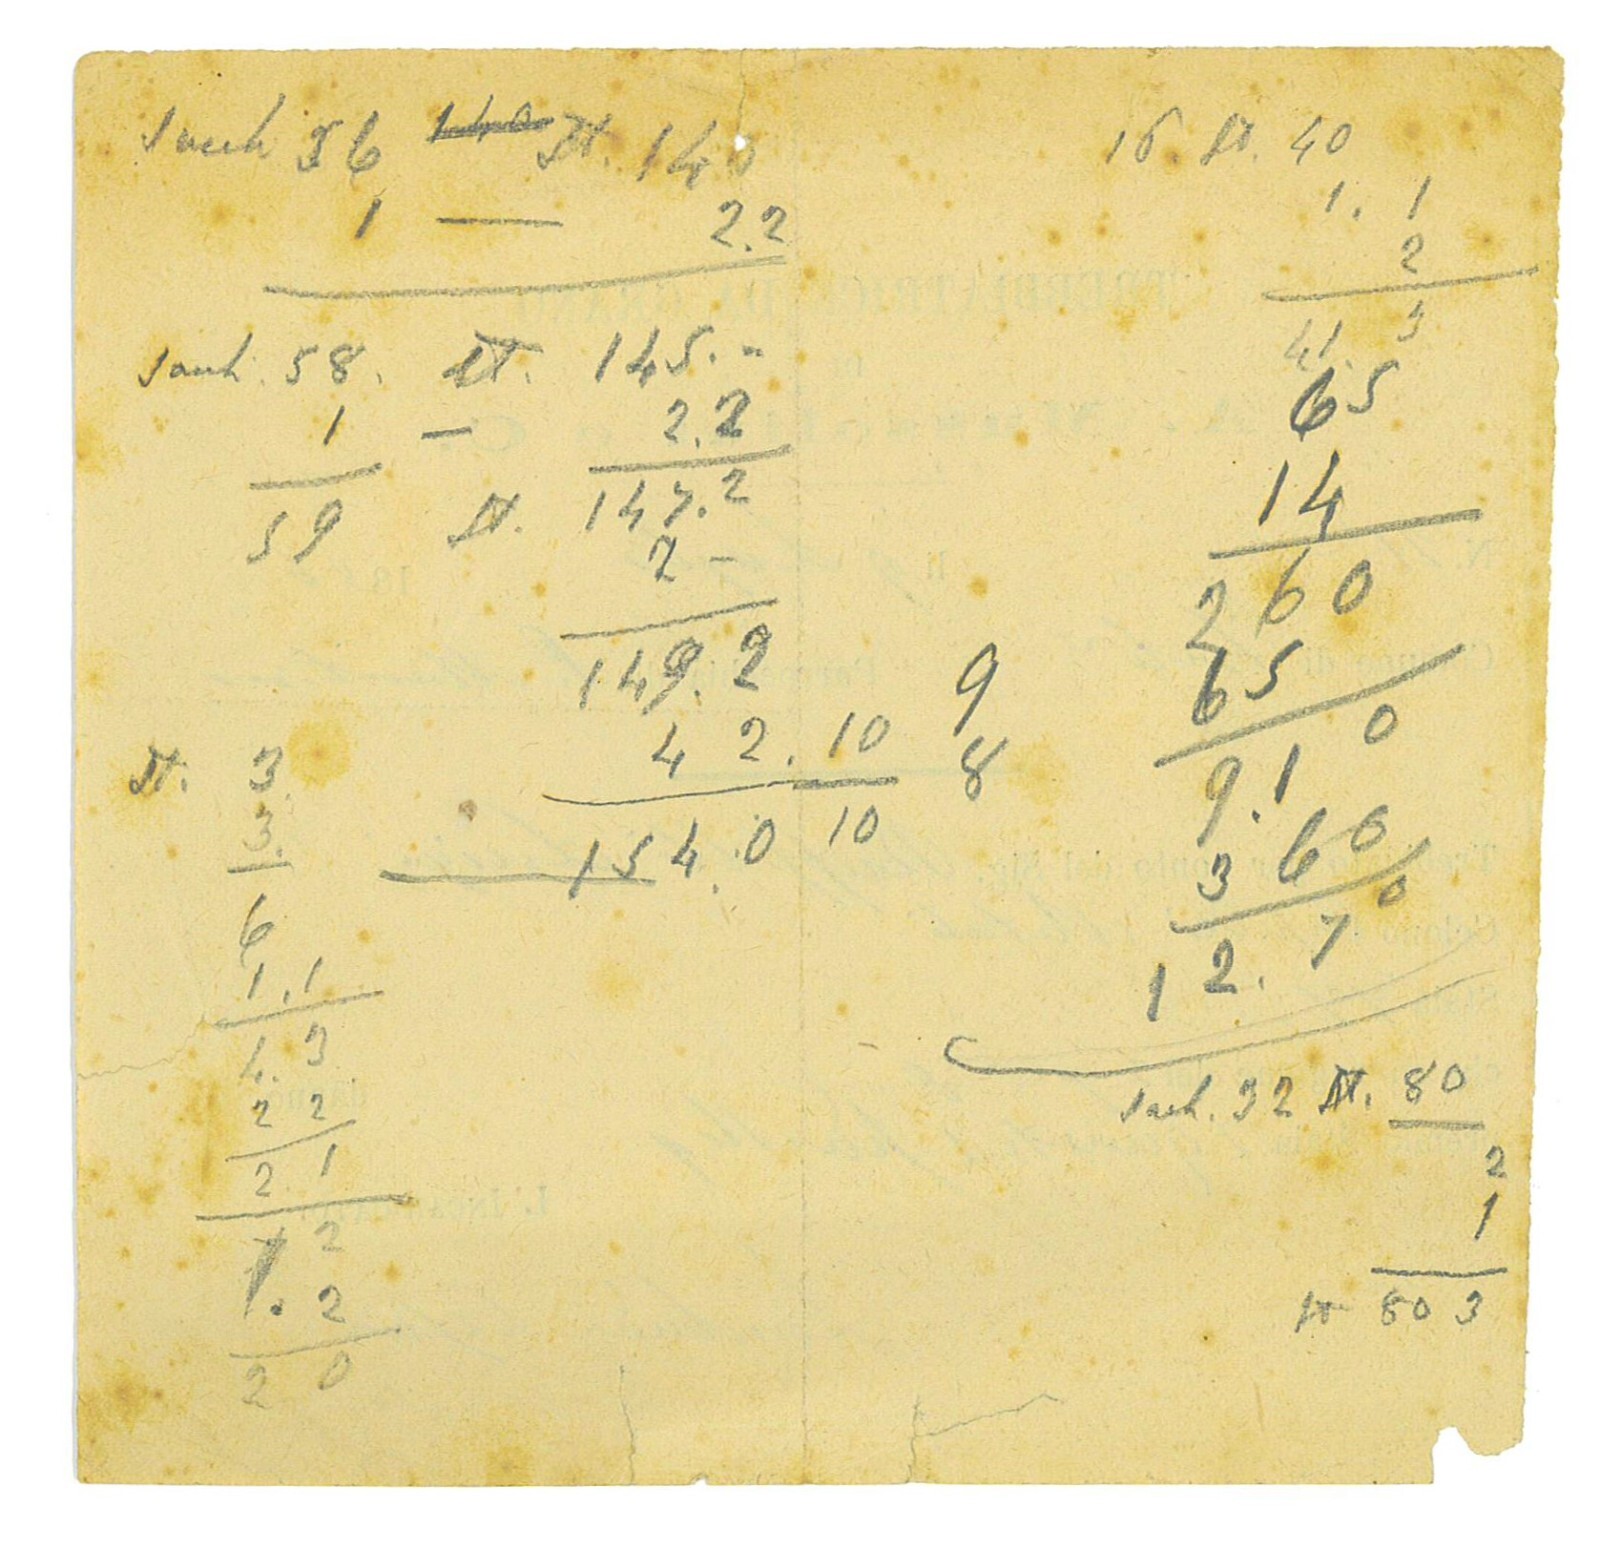 Sacch 56 140 St. 140
1 — 2.2
Sacch. 58. St. 145.-
1 — 2.2
59 St. 147.2
2 -
149.2
4 2.10
154.0 10
9
8
St. 3
3.
6
1.1
4.3
2 2
2 1
1. 2
1. 2
2 0
16. St. 40
1. 1
2
41. 3
65
14
260
65
9.1 0
3 6 0
12. 7 0
Sach. 32 St. 80
2
1
St 80 3